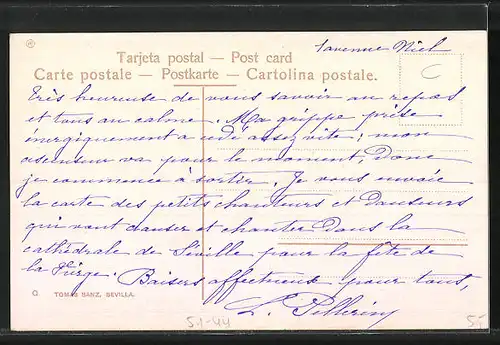 1 avenue Niel
Tarjeta postal — Post card
Carte postale — Postkarte — Cartolina postale.
C
Très heureuse de vous savoir au repos
et tous au calme. Ma grippe prise
énergiquement a cédé assez vite; mon
ascenseur va pour le moment, Donc
je commence à sortir. Je vous envoie
la carte des petits chanteurs et Danseurs
qui vont danser et chanter Dans la
cathédrale de Séville pour la fête de
la Vierge. Baisers affectueux pour tous,
L. Pellerin
TOMAS SANZ, SEVILLA.
51-44
55